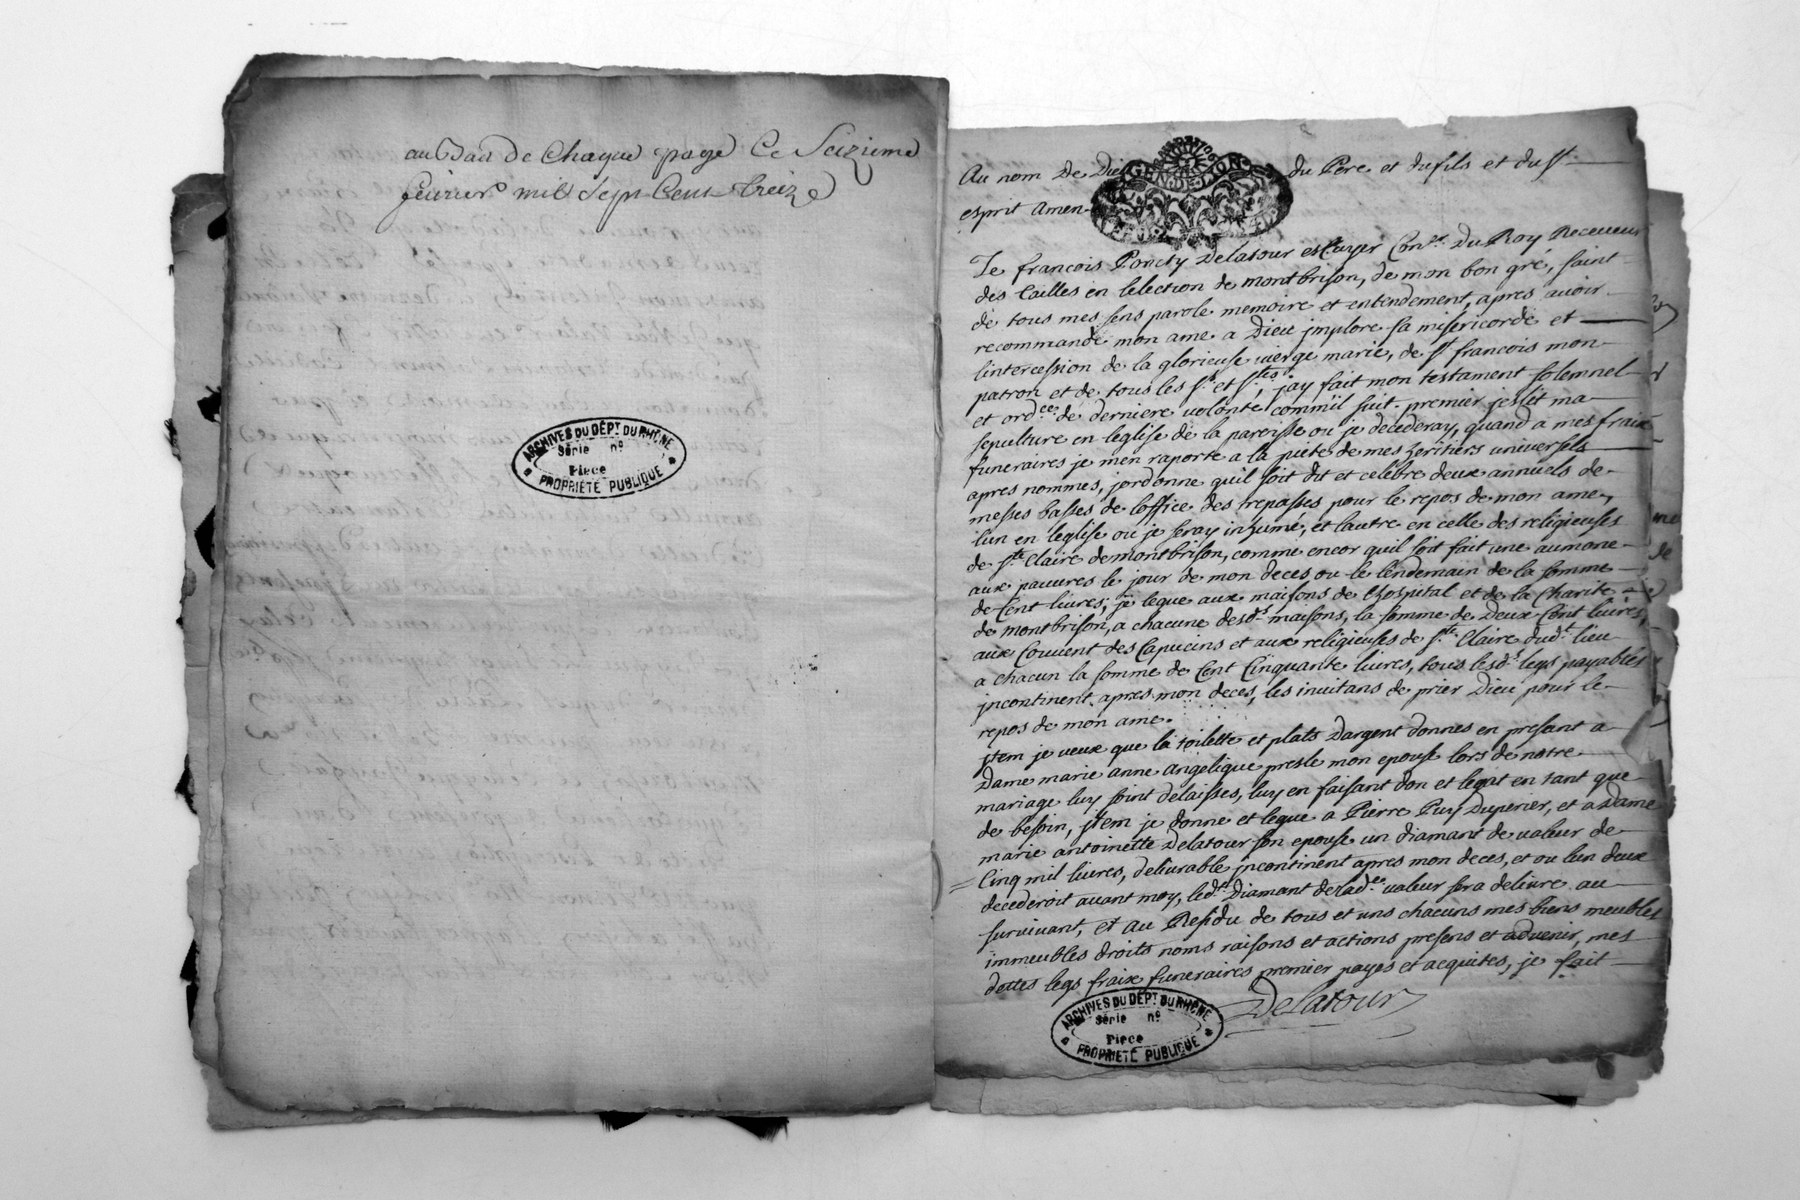 au bas de Chaque page Ce Seizieme
feuurier mil Sept Cens treize
ARCHIVES DU DÉPT. DU RHÔNE
Série nº
Piece
PROPRIÉTÉ PUBLIQUE
GEN. DE. LION
Au nom De Dieu du Pere et du fils et du st.
esprit Amen
Je francois Poncty Delatour escuyer Conr. Du Roy Receueur
des tailles en lelection de montbrison, de mon bon gré, saint
de tous mes sens parole memoire et entendement, apres auoir
recommandé mon ame a Dieu jmplore sa misericorde et
lintercession de la glorieuse vierge marie, de st francois mon
patron et de tous les sts. et stes., jay fait mon testament solemnel
et ordce. de derniere volonte comm'il suit. premier jeslit ma
sepulture en leglise de la paroisse ou je decederay, quand a mes fraix
funeraires je men raporte a la pieté de mes heritiers universels
apres nommes, jordonne qu'il soit dit et celebre deux annuels de
messes basses de loffice des trepasses pour le repos de mon ame,
lun en leglise ou je seray inhumé, et lautre en celle des religieuses
de ste. Claire de montbrison, comme encor quil soit fait une aumone
aux pauures le jour de mon deces ou le lendemain de la somme
de Cent liures; je legue aux maisons de lhospital et de la Charité
de montbrison, a chacune desds. maisons, la somme de Deux Cent liures,
aux Couuent des Capucins et aux religieuses de ste. Claire dudt. lieu
a chacun la somme de Cent Cinquante liures, tous lesds. legs payables
jncontinent apres mon deces, les inuitans de prier Dieu pour le
repos de mon ame.
jtem je veux que la toilette et plats Dargent donnes en present a
Dame marie anne angelique presle mon epouse lors de notre
mariage luy soint delaisses, luy en faisant don et legat en tant que
de besoin, jtem je donne et legue a Pierre Puy Duperier, et a Dame
marie antoinette Delatour son epouse un diamant de valeur de
Cinq mil liures, deliurable jncontinent apres mon deces, et ou lun deux
decederoit auant moy, ledt. Diamant de lade. valeur sera deliure au
suruiuant, et au Residu de tous et uns chacuns mes biens meubles
immeubles droits noms raisons et actions presens et aduenir, mes
dettes legs fraix funeraires premier payes et acquites, je fait
Delatour
ARCHIVES DU DÉPT. DU RHÔNE
Série nº
Piece
PROPRIÉTÉ PUBLIQUE